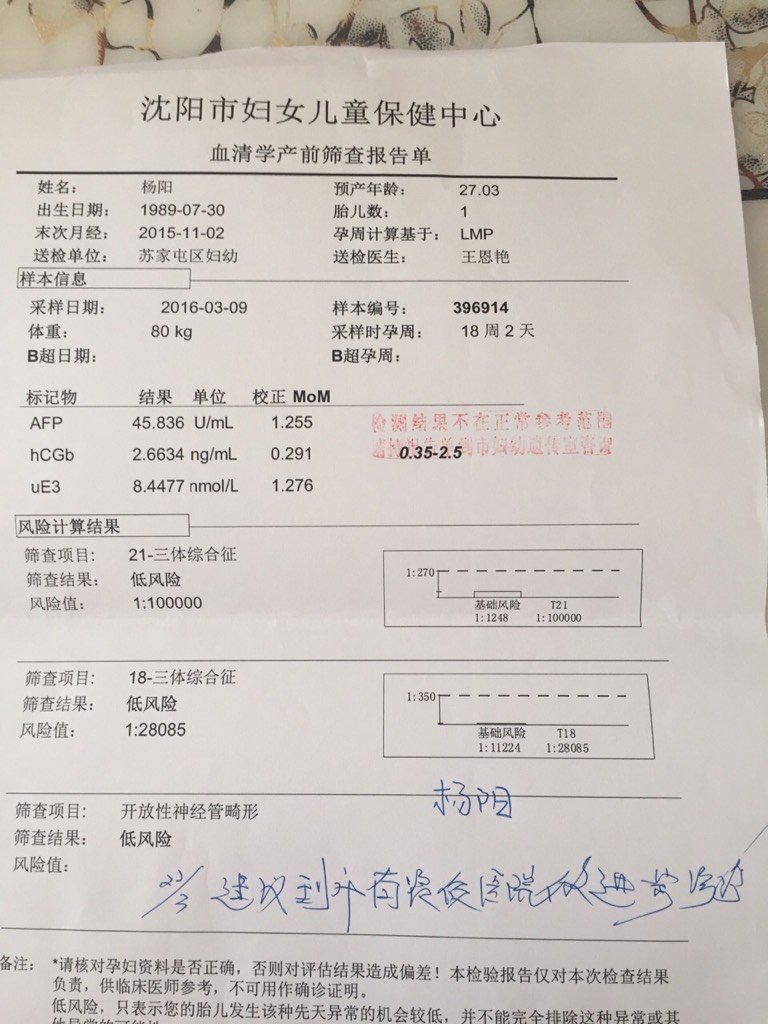 沈阳市妇女儿童保健中心
血清学产前筛查报告单
姓名： 杨阳 预产年龄： 27.03
出生日期： 1989-07-30 胎儿数： 1
末次月经： 2015-11-02 孕周计算基于： LMP
送检单位： 苏家屯区妇幼 送检医生： 王恩艳
样本信息
采样日期： 2016-03-09 样本编号： 396914
体重： 80 kg 采样时孕周： 18 周 2 天
B超日期： B超孕周：
标记物 结果 单位 校正 MoM
AFP 45.836 U/mL 1.255 检测结果不在正常参考范围
hCGb 2.6634 ng/mL 0.291 0.35-2.5 请持报告单到市妇幼遗传室咨询
uE3 8.4477 nmol/L 1.276
风险计算结果
筛查项目： 21-三体综合征
筛查结果： 低风险
风险值： 1:100000
1:270
基础风险 T21
1:1248 1:100000
筛查项目： 18-三体综合征
筛查结果： 低风险
风险值： 1:28085
1:350
基础风险 T18
1:11224 1:28085
杨阳
筛查项目： 开放性神经管畸形
筛查结果： 低风险
风险值：
建议到 医院 进
备注： *请核对孕妇资料是否正确，否则对评估结果造成偏差！本检验报告仅对本次检查结果
负责，供临床医师参考，不可用作确诊证明。
低风险，只表示您的胎儿发生该种先天异常的机会较低，并不能完全排除这种异常或其